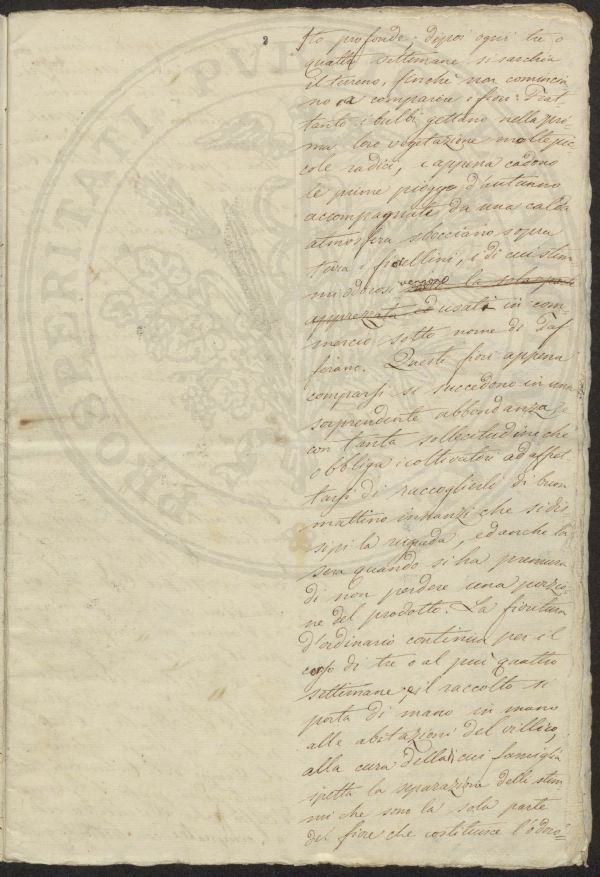 sto profondo; dipoi ogni tre o
quattro settimane si sarchia
il terreno, finchè non comincia-
no a comparire i fiori. Frat-
tanto i bulbi gettano nella pri-
ma loro vegetazione molte pic-
cole radici, e appena cadono
le prime piogge d'autunno
accompagnate da una calda
atmosfera sbocciano sopra
terra i fiorellini, i di cui stim-
mi odorosi vengono la sola parte
apprezzata ed usati in com-
mercio sotto nome di Zaf-
ferano. Questi fiori appena
comparsi si succedono in una
sorprendente abbondanza, e
con tanta sollecitudine che
obbliga i coltivatori ad affret-
tarsi di raccoglierli di buon
mattino innanzi che si dis-
sipi la rugiada, ed anche la
sera quando si ha premura
di non perdere una porzio-
ne del prodotto. La fioritura
d'ordinario continua per il
corso di tre o al più quattro
settimane; e il raccolto si
porta di mano in mano
alle abitazioni del villico,
alla cura della di cui famiglia
spetta la separazione delli stim-
mi che sono la sola parte
del fiore che costituisce l'odoro-
PROSPERITATI PUB